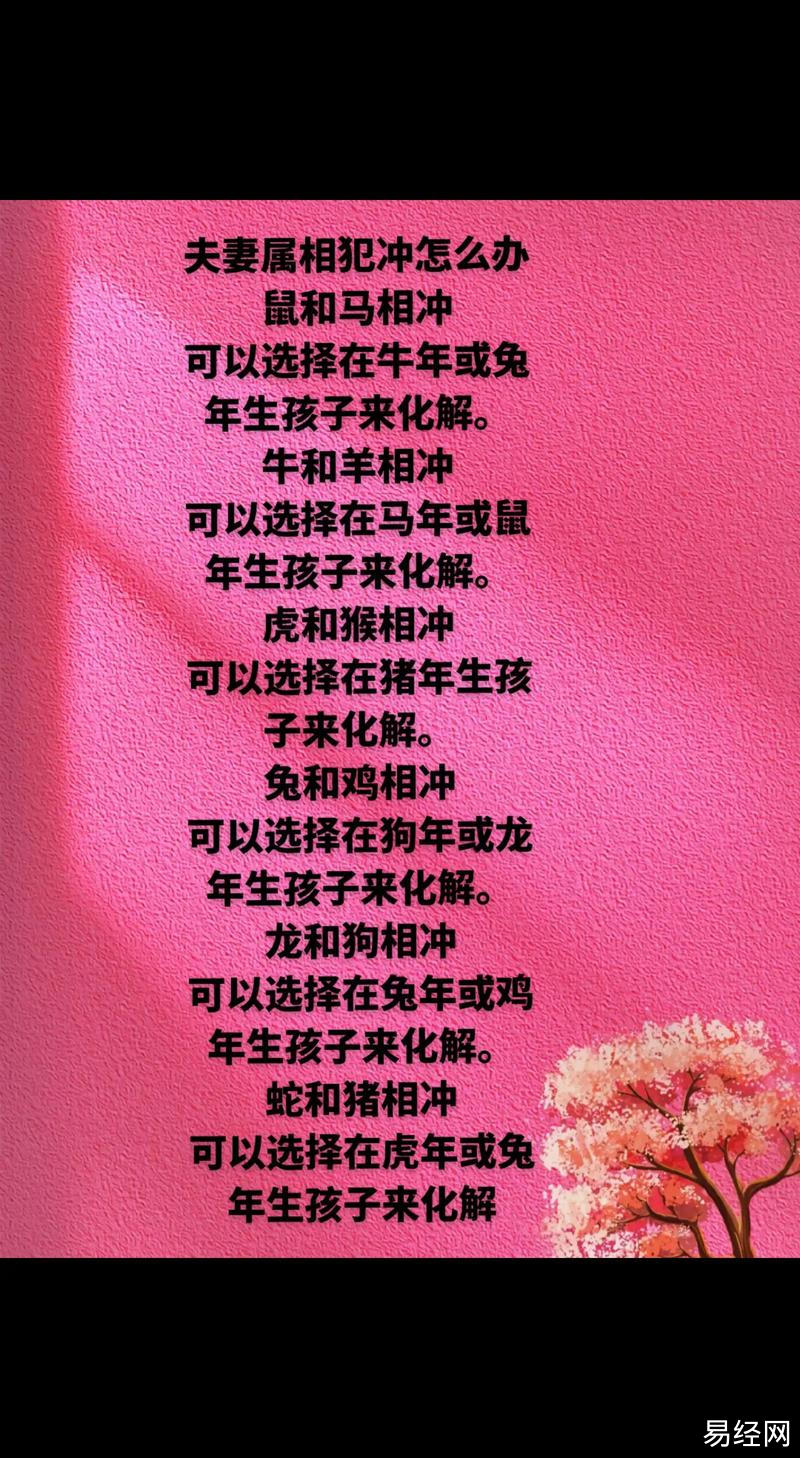 夫妻属相犯冲怎么办
鼠和马相冲
可以选择在牛年或兔
年生孩子来化解。
牛和羊相冲
可以选择在马年或鼠
年生孩子来化解。
虎和猴相冲
可以选择在猪年生孩
子来化解。
兔和鸡相冲
可以选择在狗年或龙
年生孩子来化解。
龙和狗相冲
可以选择在兔年或鸡
年生孩子来化解。
蛇和猪相冲
可以选择在虎年或兔
年生孩子来化解
易经网